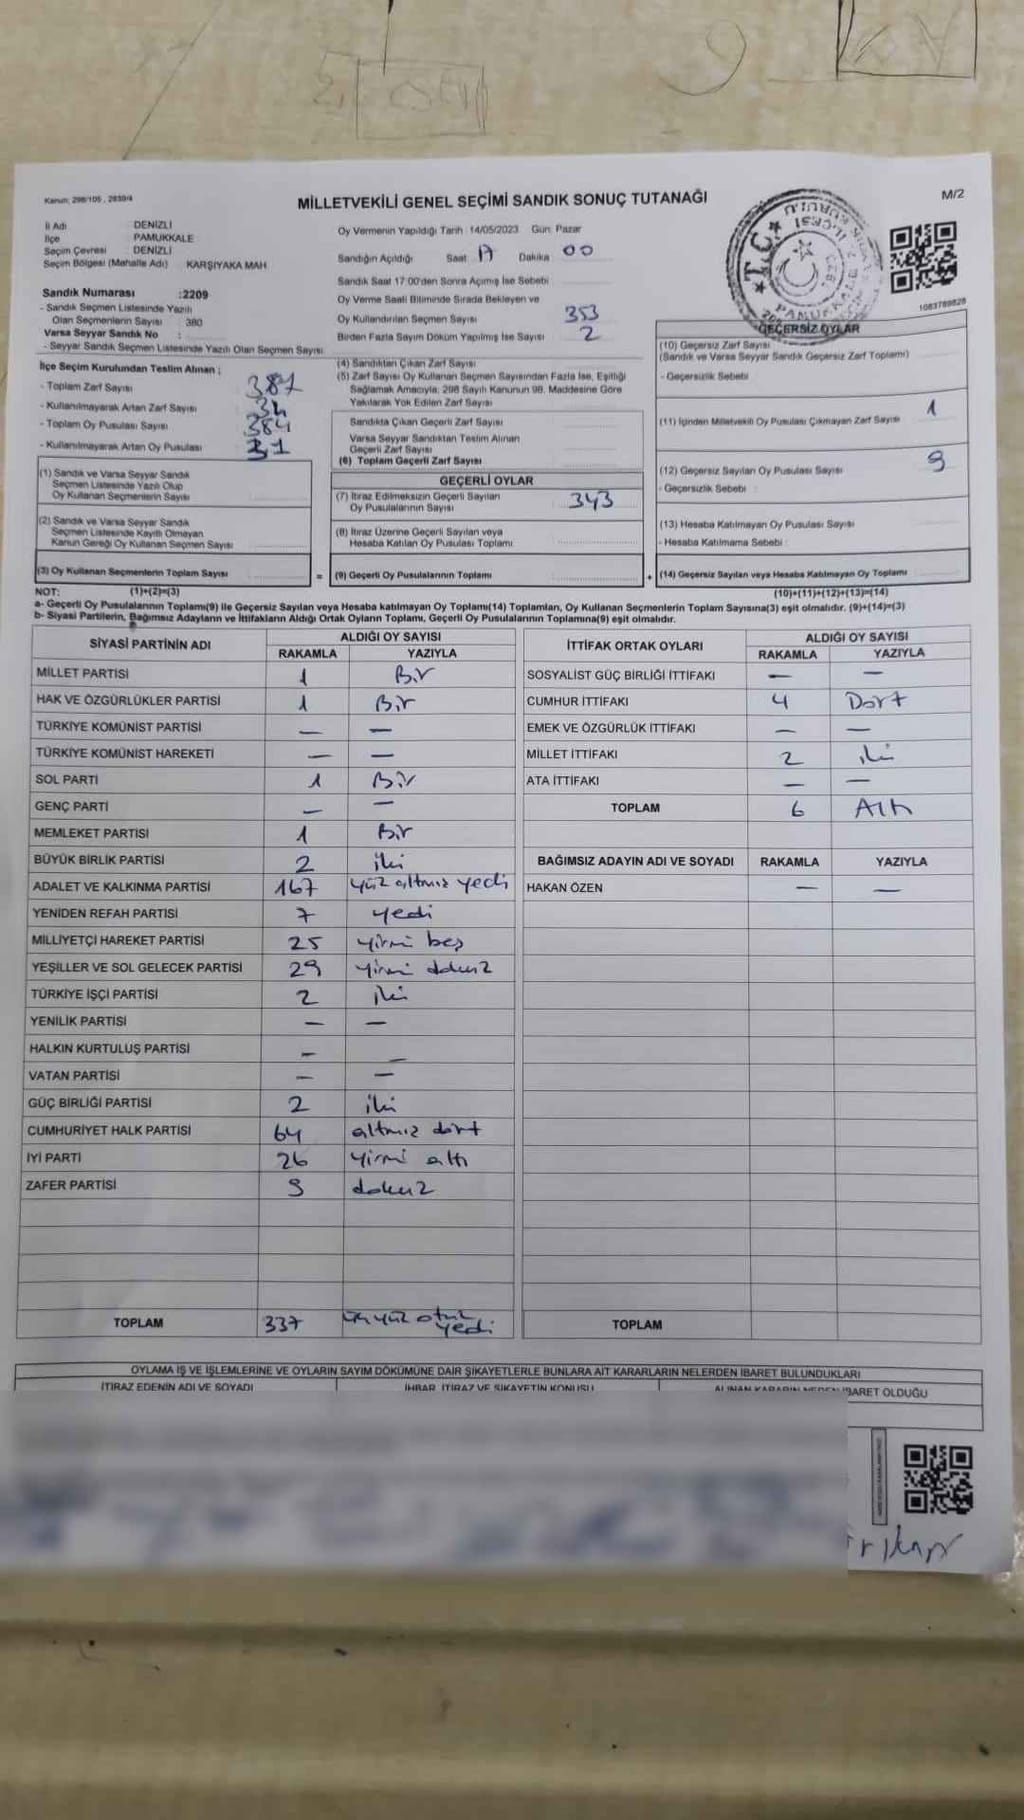 Kanun: 298/105, 2839/4
MİLLETVEKİLİ GENEL SEÇİMİ SANDIK SONUÇ TUTANAĞI
M/2
İl Adı DENİZLİ
İlçe PAMUKKALE
Seçim Çevresi DENİZLİ
Seçim Bölgesi (Mahalle Adı) KARŞIYAKA MAH
Sandık Numarası :2209
- Sandık Seçmen Listesinde Yazılı
Olan Seçmenlerin Sayısı : 380
Varsa Seyyar Sandık No :
- Seyyar Sandık Seçmen Listesinde Yazılı Olan Seçmen Sayısı
Oy Vermenin Yapıldığı Tarih : 14/05/2023 Gün: Pazar
Sandığın Açıldığı Saat 17 Dakika 00
Sandık Saat 17:00'den Sonra Açılmış İse Sebebi
Oy Verme Saati Bitiminde Sırada Bekleyen ve
Oy Kullandırılan Seçmen Sayısı 353
Birden Fazla Sayım Döküm Yapılmış İse Sayısı 2
1083789828
İlçe Seçim Kurulundan Teslim Alınan ;
- Toplam Zarf Sayısı 387
- Kullanılmayarak Artan Zarf Sayısı 34
- Toplam Oy Pusulası Sayısı 384
- Kullanılmayarak Artan Oy Pusulası 31
(1) Sandık ve Varsa Seyyar Sandık
Seçmen Listesinde Yazılı Olup
Oy Kullanan Seçmenlerin Sayısı
(2) Sandık ve Varsa Seyyar Sandık
Seçmen Listesinde Kayıtlı Olmayan
Kanun Gereği Oy Kullanan Seçmen Sayısı
(3) Oy Kullanan Seçmenlerin Toplam Sayısı =
(4) Sandıktan Çıkan Zarf Sayısı
(5) Zarf Sayısı Oy Kullanan Seçmen Sayısından Fazla İse, Eşitliği
Sağlamak Amacıyla, 298 Sayılı Kanunun 98. Maddesine Göre
Yakılarak Yok Edilen Zarf Sayısı
Sandıkta Çıkan Geçerli Zarf Sayısı
Varsa Seyyar Sandıktan Teslim Alınan
Geçerli Zarf Sayısı
(6) Toplam Geçerli Zarf Sayısı
GEÇERLİ OYLAR
(7) İtiraz Edilmeksizin Geçerli Sayılan
Oy Pusulalarının Sayısı 343
(8) İtiraz Üzerine Geçerli Sayılan veya
Hesaba Katılan Oy Pusulası Toplamı
(9) Geçerli Oy Pusulalarının Toplamı +
GEÇERSİZ OYLAR
(10) Geçersiz Zarf Sayısı
(Sandık ve Varsa Seyyar Sandık Geçersiz Zarf Toplamı)
- Geçersizlik Sebebi
(11) İçinden Milletvekili Oy Pusulası Çıkmayan Zarf Sayısı 1
(12) Geçersiz Sayılan Oy Pusulası Sayısı 9
- Geçersizlik Sebebi :
(13) Hesaba Katılmayan Oy Pusulası Sayısı
- Hesaba Katılmama Sebebi :
(14) Geçersiz Sayılan veya Hesaba Katılmayan Oy Toplamı
NOT: (1)+(2)=(3) (10)+(11)+(12)+(13)=(14)
a- Geçerli Oy Pusulalarının Toplamı(9) ile Geçersiz Sayılan veya Hesaba katılmayan Oy Toplamı(14) Toplamları, Oy Kullanan Seçmenlerin Toplam Sayısına(3) eşit olmalıdır. (9)+(14)=(3)
b- Siyasi Partilerin, Bağımsız Adayların ve İttifakların Aldığı Ortak Oyların Toplamı, Geçerli Oy Pusulalarının Toplamına(9) eşit olmalıdır.
SİYASİ PARTİNİN ADI ALDIĞI OY SAYISI
RAKAMLA YAZIYLA
MİLLET PARTİSİ 1 Bir
HAK VE ÖZGÜRLÜKLER PARTİSİ 1 Bir
TÜRKİYE KOMÜNİST PARTİSİ — —
TÜRKİYE KOMÜNİST HAREKETİ — —
SOL PARTİ 1 Bir
GENÇ PARTİ — —
MEMLEKET PARTİSİ 1 Bir
BÜYÜK BİRLİK PARTİSİ 2 iki
ADALET VE KALKINMA PARTİSİ 167 yüz altmız yedi
YENİDEN REFAH PARTİSİ 7 yedi
MİLLİYETÇİ HAREKET PARTİSİ 25 yirmi beş
YEŞİLLER VE SOL GELECEK PARTİSİ 29 yirmi dokuz
TÜRKİYE İŞÇİ PARTİSİ 2 iki
YENİLİK PARTİSİ — —
HALKIN KURTULUŞ PARTİSİ — —
VATAN PARTİSİ — —
GÜÇ BİRLİĞİ PARTİSİ 2 iki
CUMHURİYET HALK PARTİSİ 64 altmız dört
İYİ PARTİ 26 yirmi altı
ZAFER PARTİSİ 9 dokuz
TOPLAM 337 üçyüz otuz
yedi
İTTİFAK ORTAK OYLARI ALDIĞI OY SAYISI
RAKAMLA YAZIYLA
SOSYALİST GÜÇ BİRLİĞİ İTTİFAKI — —
CUMHUR İTTİFAKI 4 Dört
EMEK VE ÖZGÜRLÜK İTTİFAKI — —
MİLLET İTTİFAKI 2 iki
ATA İTTİFAKI — —
TOPLAM 6 Altı
BAĞIMSIZ ADAYIN ADI VE SOYADI RAKAMLA YAZIYLA
HAKAN ÖZEN — —
TOPLAM
OYLAMA İŞ VE İŞLEMLERİNE VE OYLARIN SAYIM DÖKÜMÜNE DAİR ŞİKAYETLERLE BUNLARA AİT KARARLARIN NELERDEN İBARET BULUNDUKLARI
İTİRAZ EDENİN ADI VE SOYADI İHBAR, İTİRAZ VE ŞİKAYETİN KONUSU ALINAN KARARIN NEDEN İBARET OLDUĞU